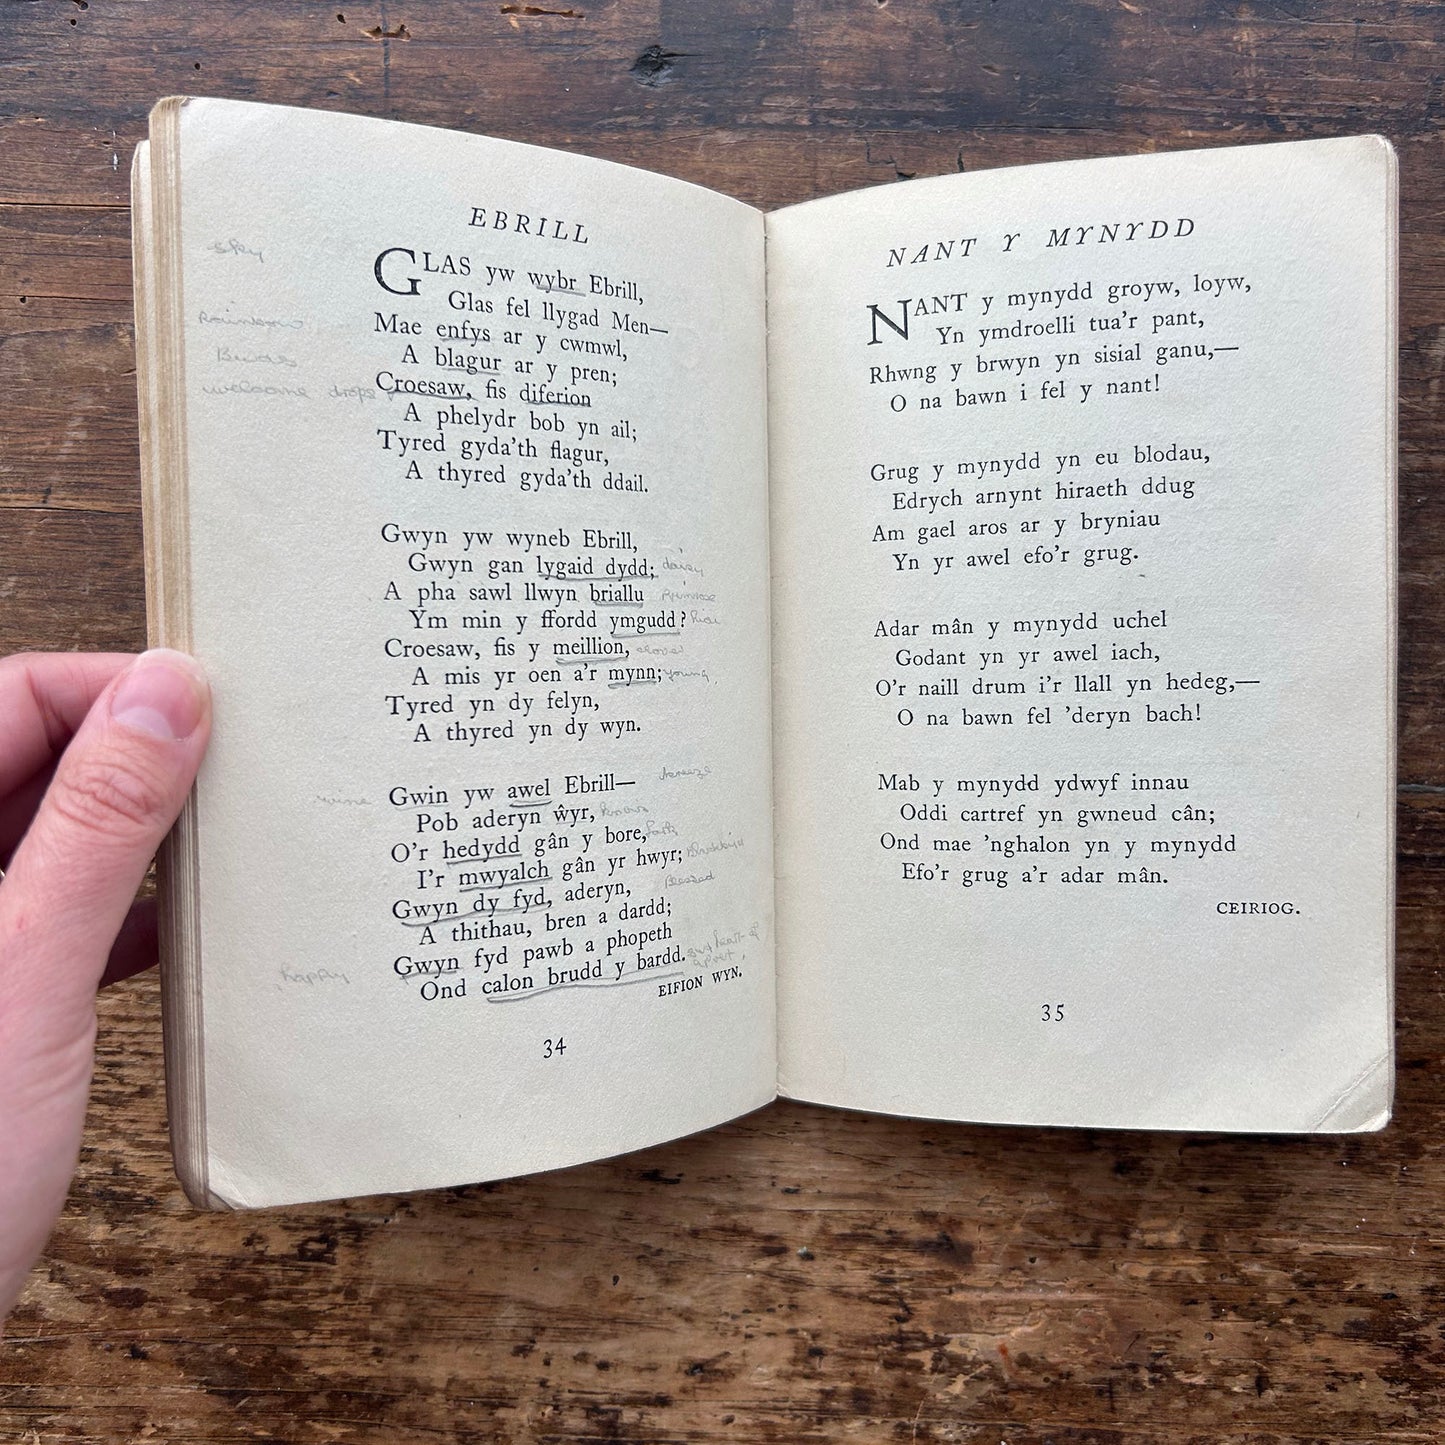 EBRILL
sky
GLAS yw wybr Ebrill,
Glas fel llygad Men—
rainbow
Mae enfys ar y cwmwl,
A blagur ar y pren;
welcome drops
Croesaw, fis diferion
A phelydr bob yn ail;
Tyred gyda'th flagur,
A thyred gyda'th ddail.
Gwyn yw wyneb Ebrill,
Gwyn gan lygaid dydd; daisy
A pha sawl llwyn briallu primrose
Ym min y ffordd ymgudd?
Croesaw, fis y meillion, clover
A mis yr oen a'r mynn; young
Tyred yn dy felyn,
A thyred yn dy wyn.
breeze
wine Gwin yw awel Ebrill—
Pob aderyn ŵyr, knows
O'r hedydd gân y bore,
I'r mwyalch gân yr hwyr; Blackbird
Blessed
Gwyn dy fyd, aderyn,
A thithau, bren a dardd;
Gwyn fyd pawb a phopeth
happy
Ond calon brudd y bardd. heart of
EIFION WYN.
34
NANT Y MYNYDD
NANT y mynydd groyw, loyw,
Yn ymdroelli tua'r pant,
Rhwng y brwyn yn sisial ganu,—
O na bawn i fel y nant!
Grug y mynydd yn eu blodau,
Edrych arnynt hiraeth ddug
Am gael aros ar y bryniau
Yn yr awel efo'r grug.
Adar mân y mynydd uchel
Godant yn yr awel iach,
O'r naill drum i'r llall yn hedeg,—
O na bawn fel 'deryn bach!
Mab y mynydd ydwyf innau
Oddi cartref yn gwneud cân;
Ond mae 'nghalon yn y mynydd
Efo'r grug a'r adar mân.
CEIRIOG.
35